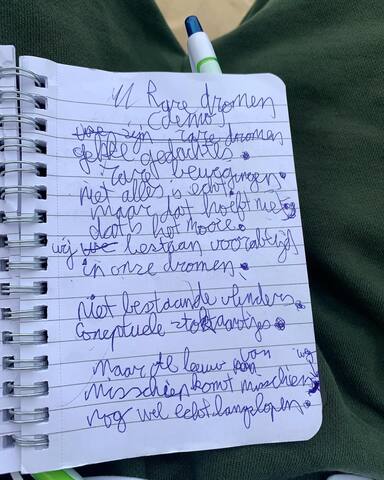 Rare dromen
(demo)
we zijn rare dromen
gekke gedachtes.
rare bewegingen.
niet alles is echt
maar dat hoeft niet
dat is het mooie.
wij we bestaan voor altijd
in onze dromen.
niet bestaande vlinders
Conceptuele stok
maar de leeuw van
misschien komt misschien
nog wel echt langslopen.